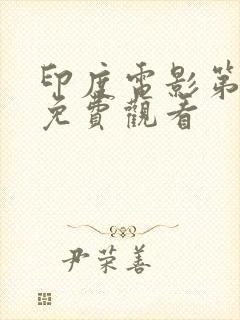 印度电影第
免費觀看
尹荣善